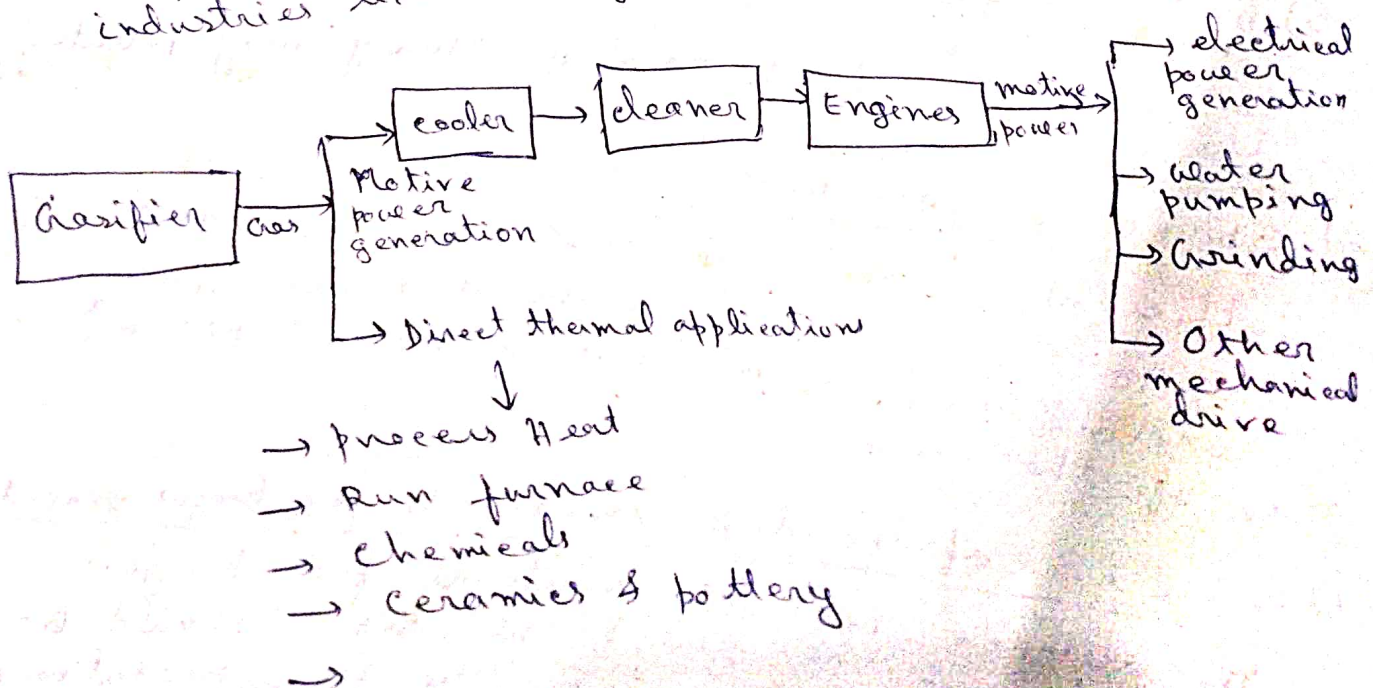 industries
Gasifier
Gas
cooler
cleaner
Engines
motive
power
Motive
power
generation
electrical
power
generation
water
pumping
Grinding
Other
mechanical
drive
Direct thermal applications
→ process Heat
→ Run furnace
→ chemicals
→ ceramics & pottery
→